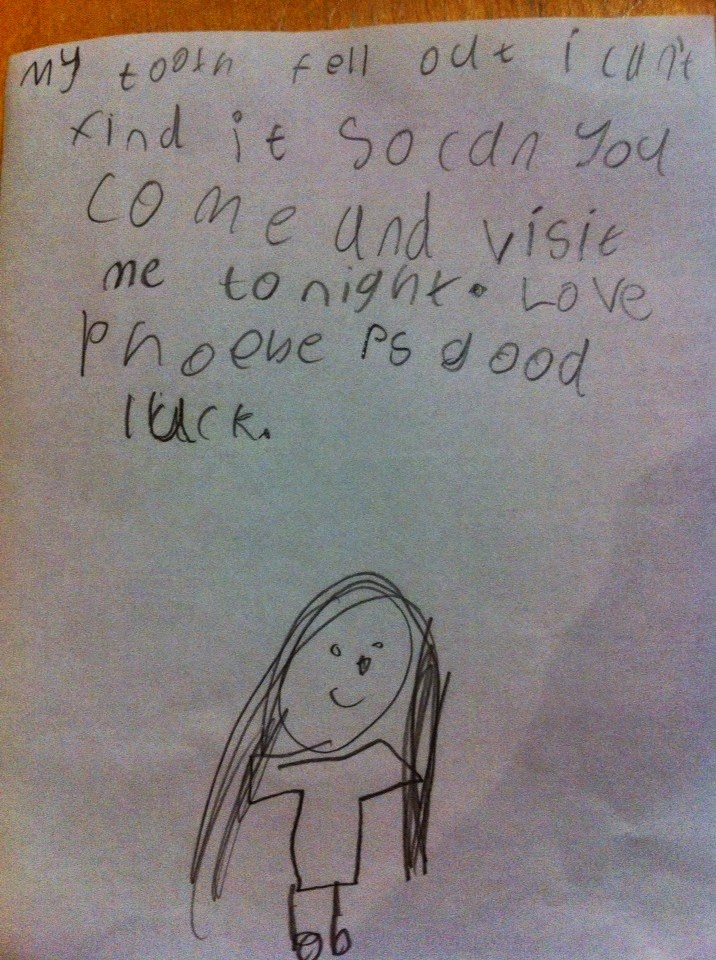 My tooth fell out i can't
find it so can you
come and visit
me tonight. Love
Phoebe Ps good
luck.